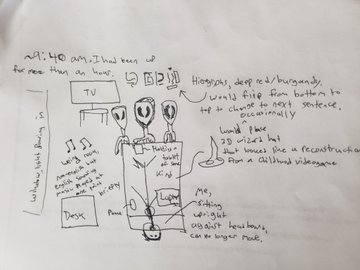 ~9:40 am. I had been up
for more than an hour.
Hieroglyphs, deep red/burgundy,
would flip from bottom to
top to change to next sentence.
occasionally
Would phase
3D wizard hat
that looked like a reconstruction
from a childhood videogame
TV
window, light flowing in
weird noise,
nonenglish but
English sounding
music played at
one point
briefly
Desk
Phone
Holding a
tablet
of some
kind
Laptop
Me,
sitting
upright
against headboard,
can no longer move.